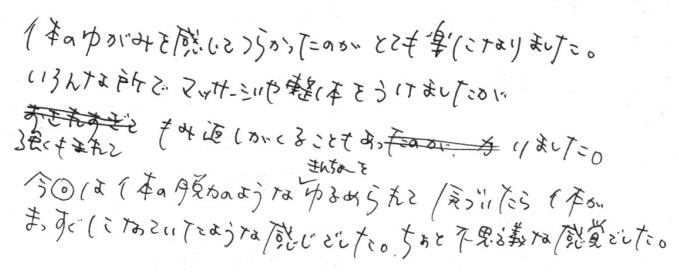 体のゆがみを感じてつらかったのが とても楽になりました。
いろんな所で マッサージや整体をうけましたが
強くもまれて もみ返しがくることもありました。
きんちょーを
今回は体の脱力のような ゆるめられて 気づいたら 体が
まっすぐになっていたような感じでした。ちょっと不思議な感覚でした。